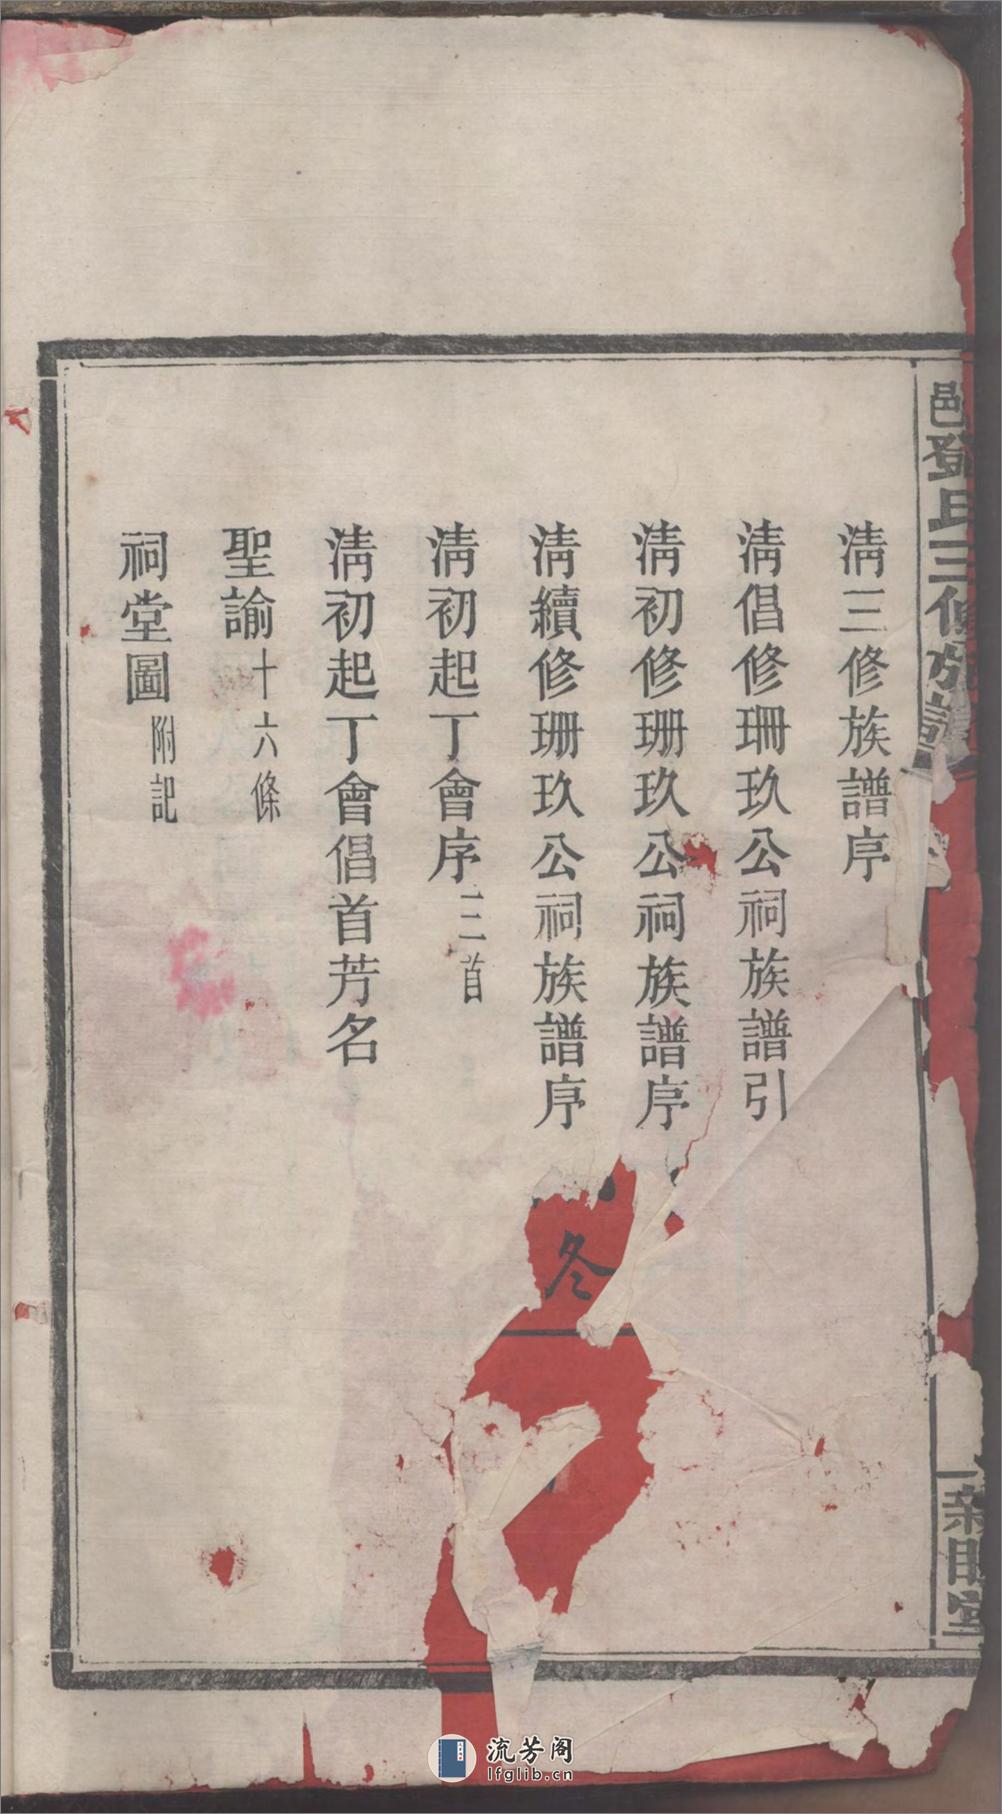 邑鄧氏三修族譜
清三修族譜序
清倡修珊玖公祠族譜引
清初修珊玖公祠族譜序
清續修珊玖公祠族譜序
清初起丁會序三首
清初起丁會倡首芳名
聖諭十六條
祠堂圖附記
冬
流芳阁
lfglib.cn